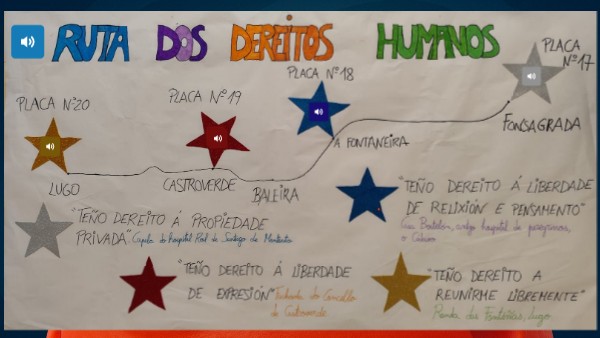 RUTA DOS DEREITOS HUMANOS
PLACA Nº 17
PLACA Nº 18
PLACA Nº 19
PLACA Nº 20
FONSAGRADA
A FONTANEIRA
LUGO
CASTROVERDE
BALEIRA
"TEÑO DEREITO Á LIBERDADE
DE RELIXIÓN E PENSAMENTO"
antigo hospital de peregrinos,
o Cádavo
"TEÑO DEREITO Á PROPIEDADE
PRIVADA" Capela do hospital Real de Santiago de Montouto
"TEÑO DEREITO Á LIBERDADE
DE EXPRESIÓN" Fachada do Concello
de Castroverde
"TEÑO DEREITO A
REUNIRME LIBREMENTE"
Ronda das Fontiñas, Lugo